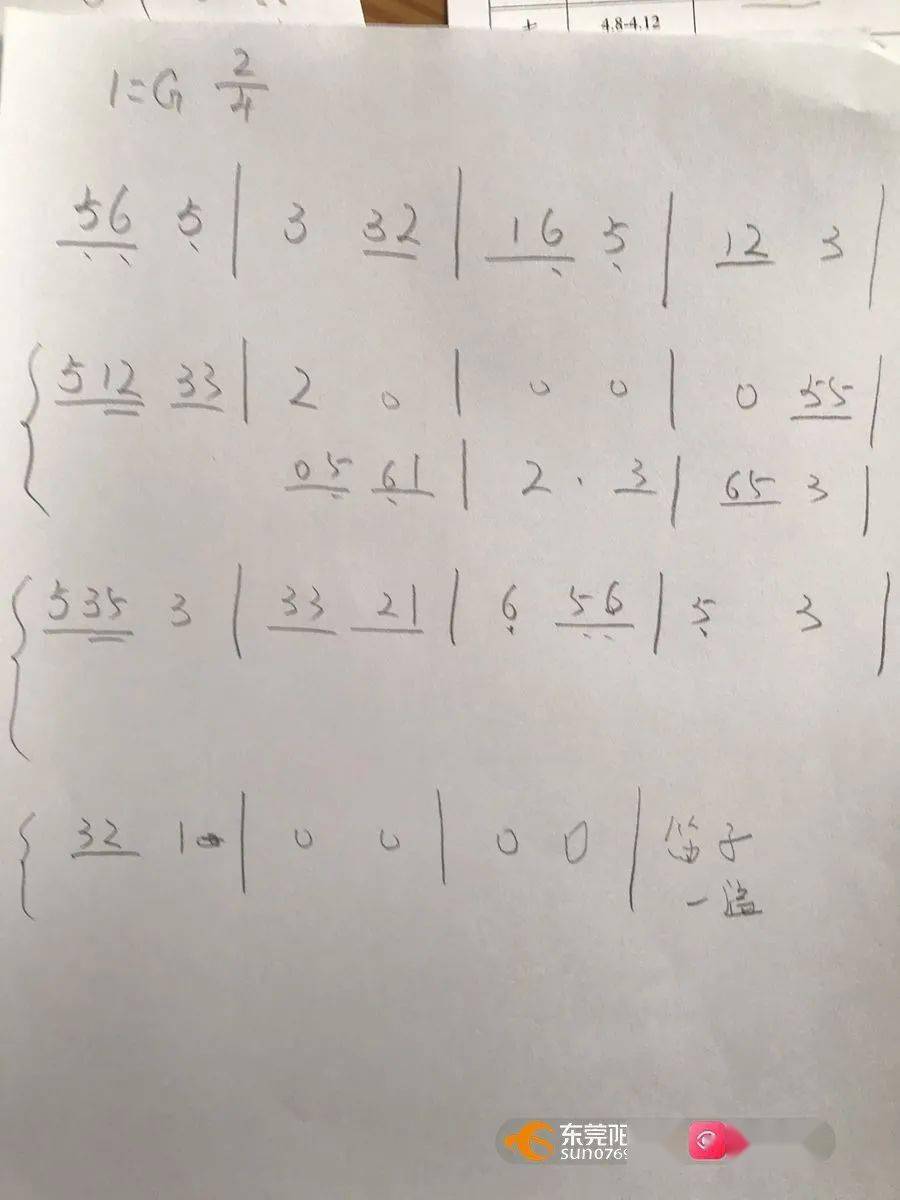 4.8-4.12
1=G 2/4
56 5 | 3 32 | 16 5 | 12 3 |
512 33 | 2 0 | 0 0 | 0 55 |
05 61 | 2 · 3 | 65 3 |
535 3 | 33 21 | 6 56 | 5 3 |
32 1 | 0 0 | 0 0 | 笛子
一
东莞阳
sun0769